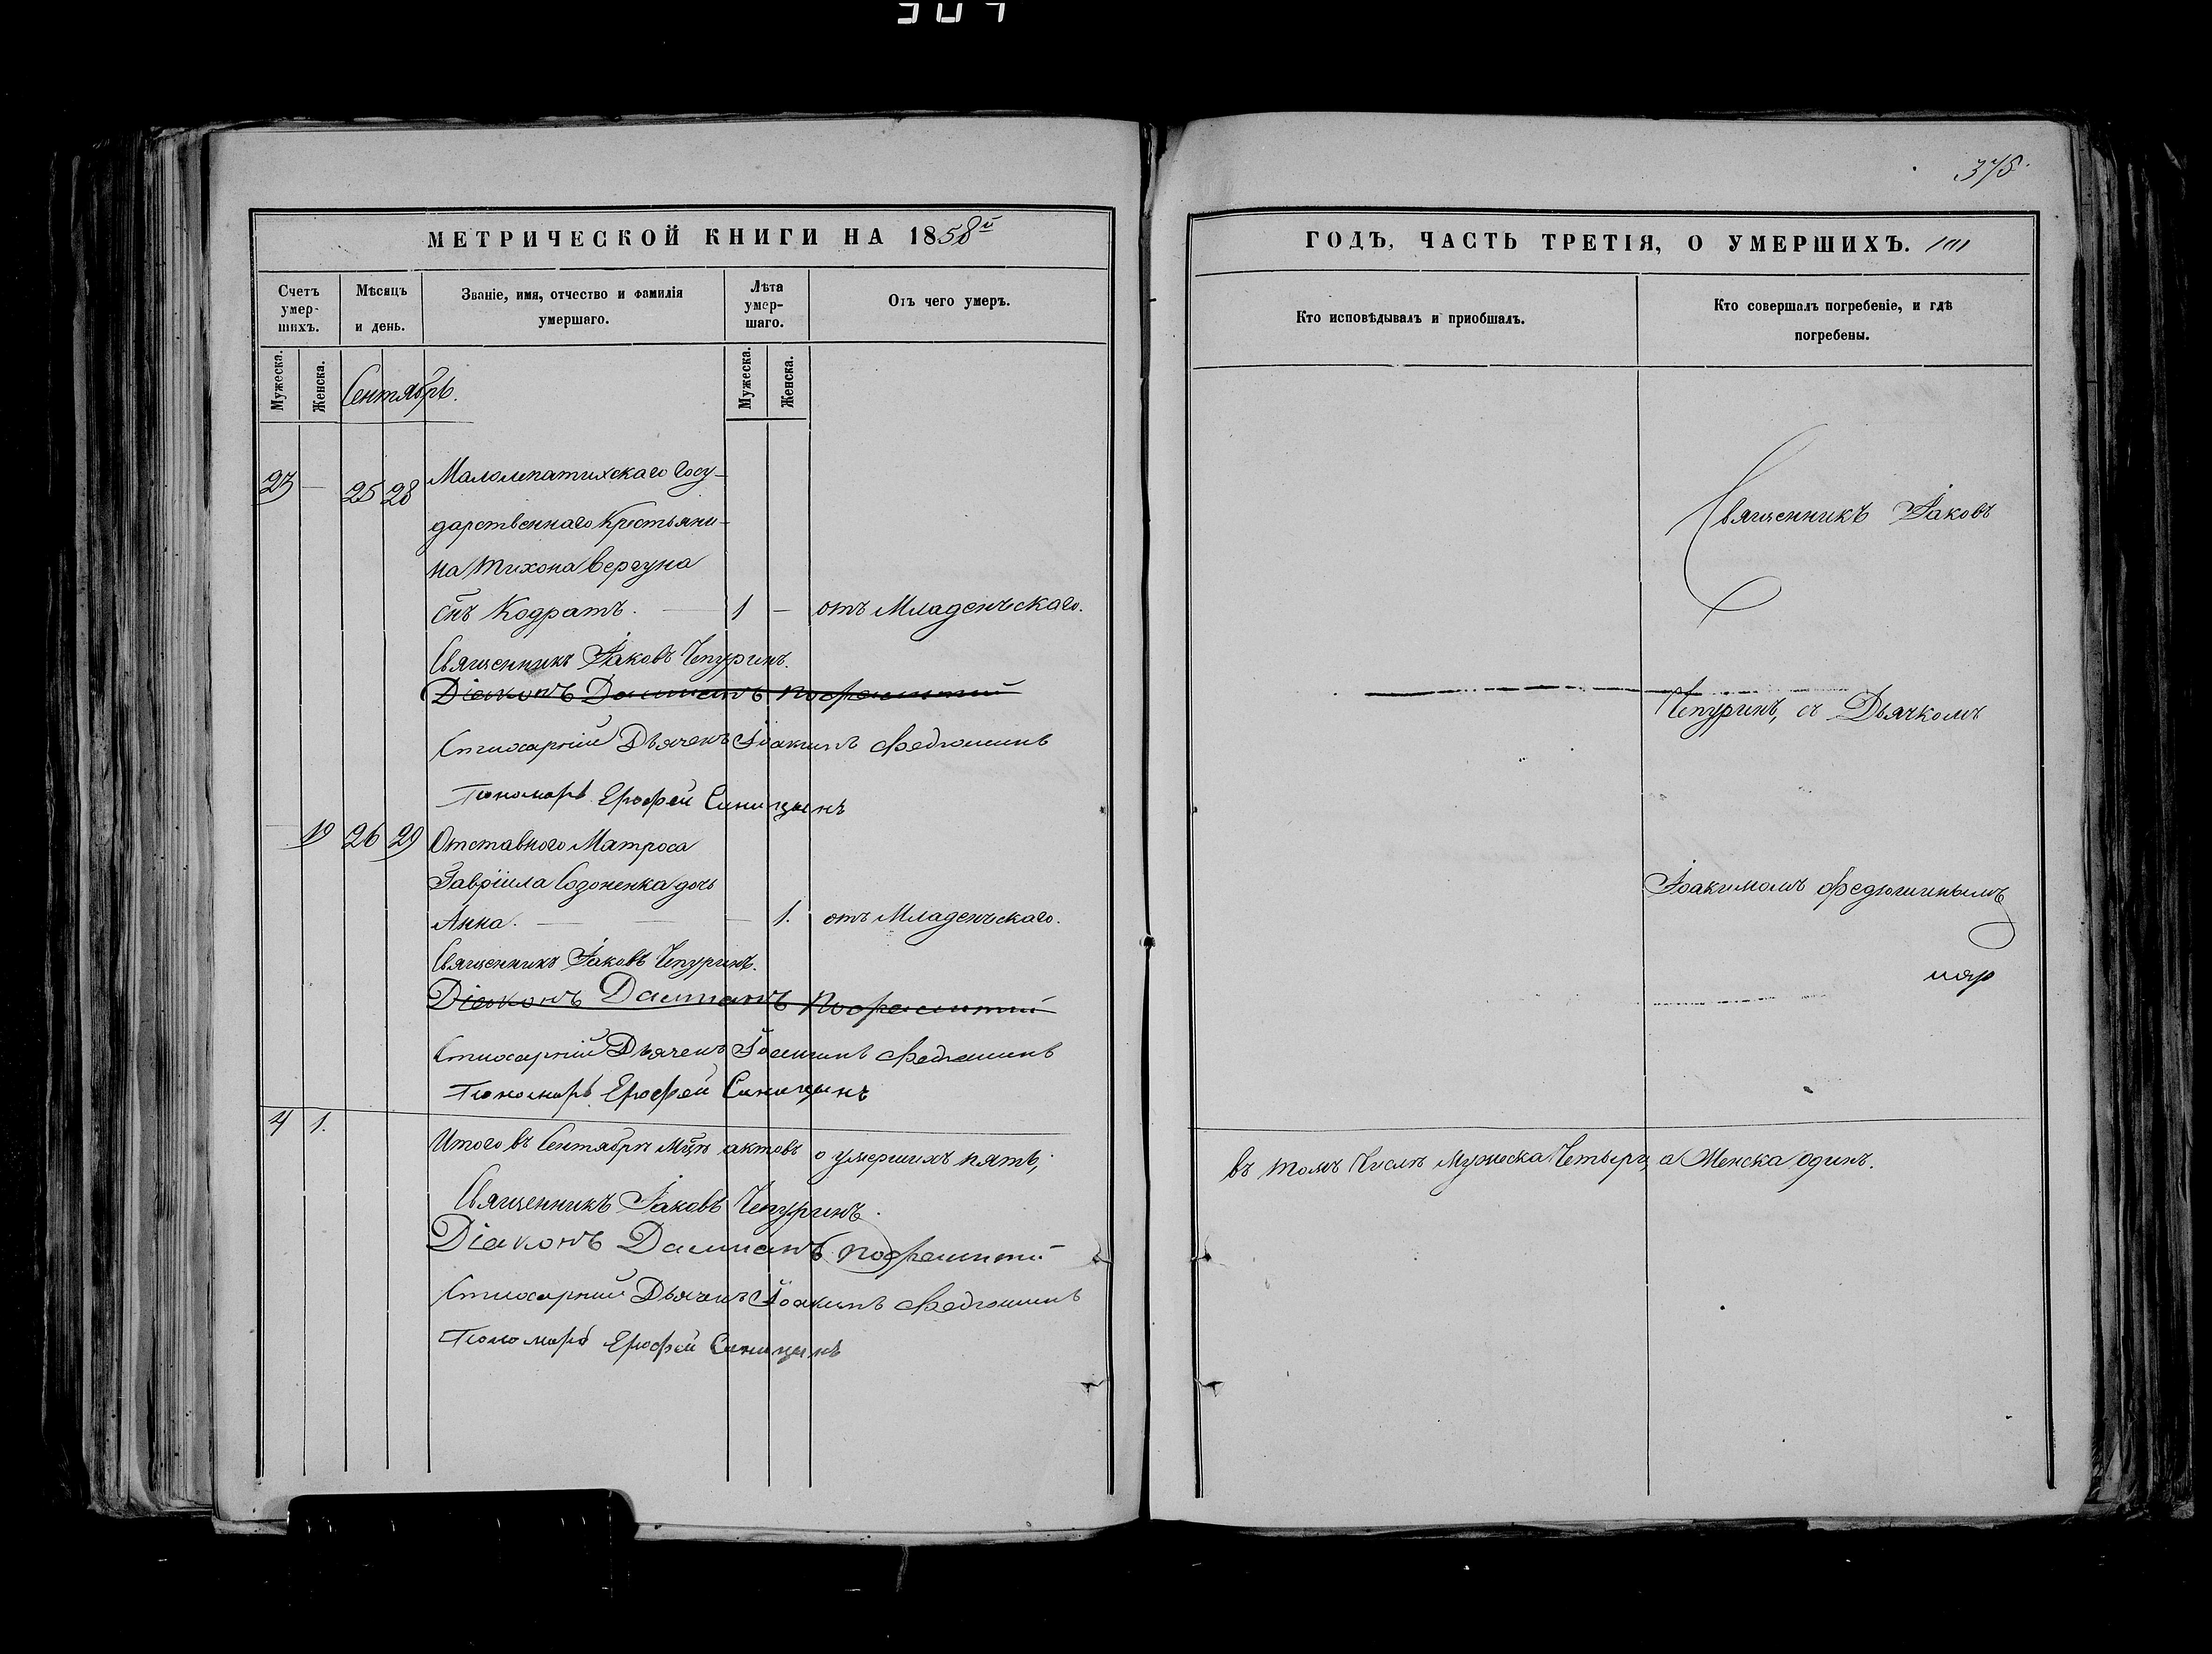 МЕТРИЧЕСКОЙ КНИГИ НА 1858й
Счетъ умер-шихъ.
Мѣсяцъ и день.
Званіе, имя, отчество и фамилія умершаго.
Лѣта умер-шаго.
Отъ чего умеръ.
Мужеска.
Женска.
Сентябрь.
Мужеска.
Женска.
23 — 25 28 Малолепатихскаго Госу-
дарственнаго Крестьяни-
на Тихона Вергуна
снъ Кодратъ. — 1 — отъ Младенческаго.
Священникъ Іаковъ Чепуринъ.
Діаконъ
Стихарный Дьячекъ Іоакимъ Федюшинъ
Пономарь Ерофей Синицынъ
19 26 29 Отставного Матроса
Гавріила Созоненка дочь
Анна. — — — 1. отъ Младенческаго.
Священникъ Іаковъ Чепуринъ.
Діаконъ
Стихарный Дьячекъ Іоакимъ Федюшинъ
Пономарь Ерофей Синицынъ
4 1.
Итого въ Сентябрѣ мцѣ актовъ о умершихъ пять,
Священникъ Іаковъ Чепуринъ.
Діаконъ
Стихарный Дьячекъ Іоакимъ Федюшинъ
Пономарь Ерофей Синицынъ
375.
ГОДЪ, ЧАСТЬ ТРЕТІЯ, О УМЕРШИХЪ.
Кто исповѣдывалъ и пріобщалъ.
Кто совершалъ погребеніе, и гдѣ погребены.
Священникъ Іаковъ
Чепуринъ, съ Дьячкомъ
Іоакимомъ Федюшинымъ
въ томъ числѣ мужеска четыре, а Женска один.